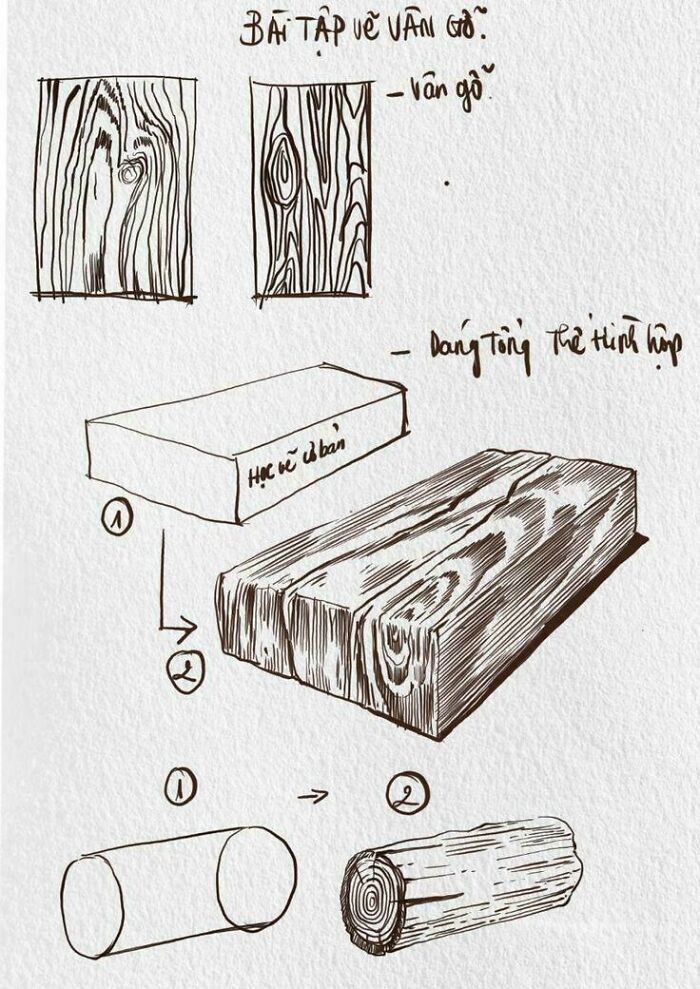 BÀI TẬP VẼ VÂN GỖ.
- Vân gỗ
- Dáng Tổng Thể Hình hộp
Học vẽ cơ bản
1
2
1 → 2